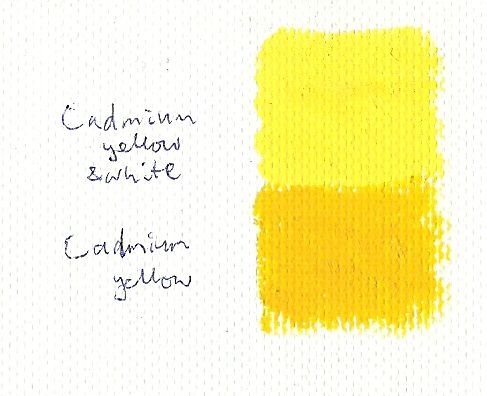 Cadmium
yellow
& white
Cadmium
yellow